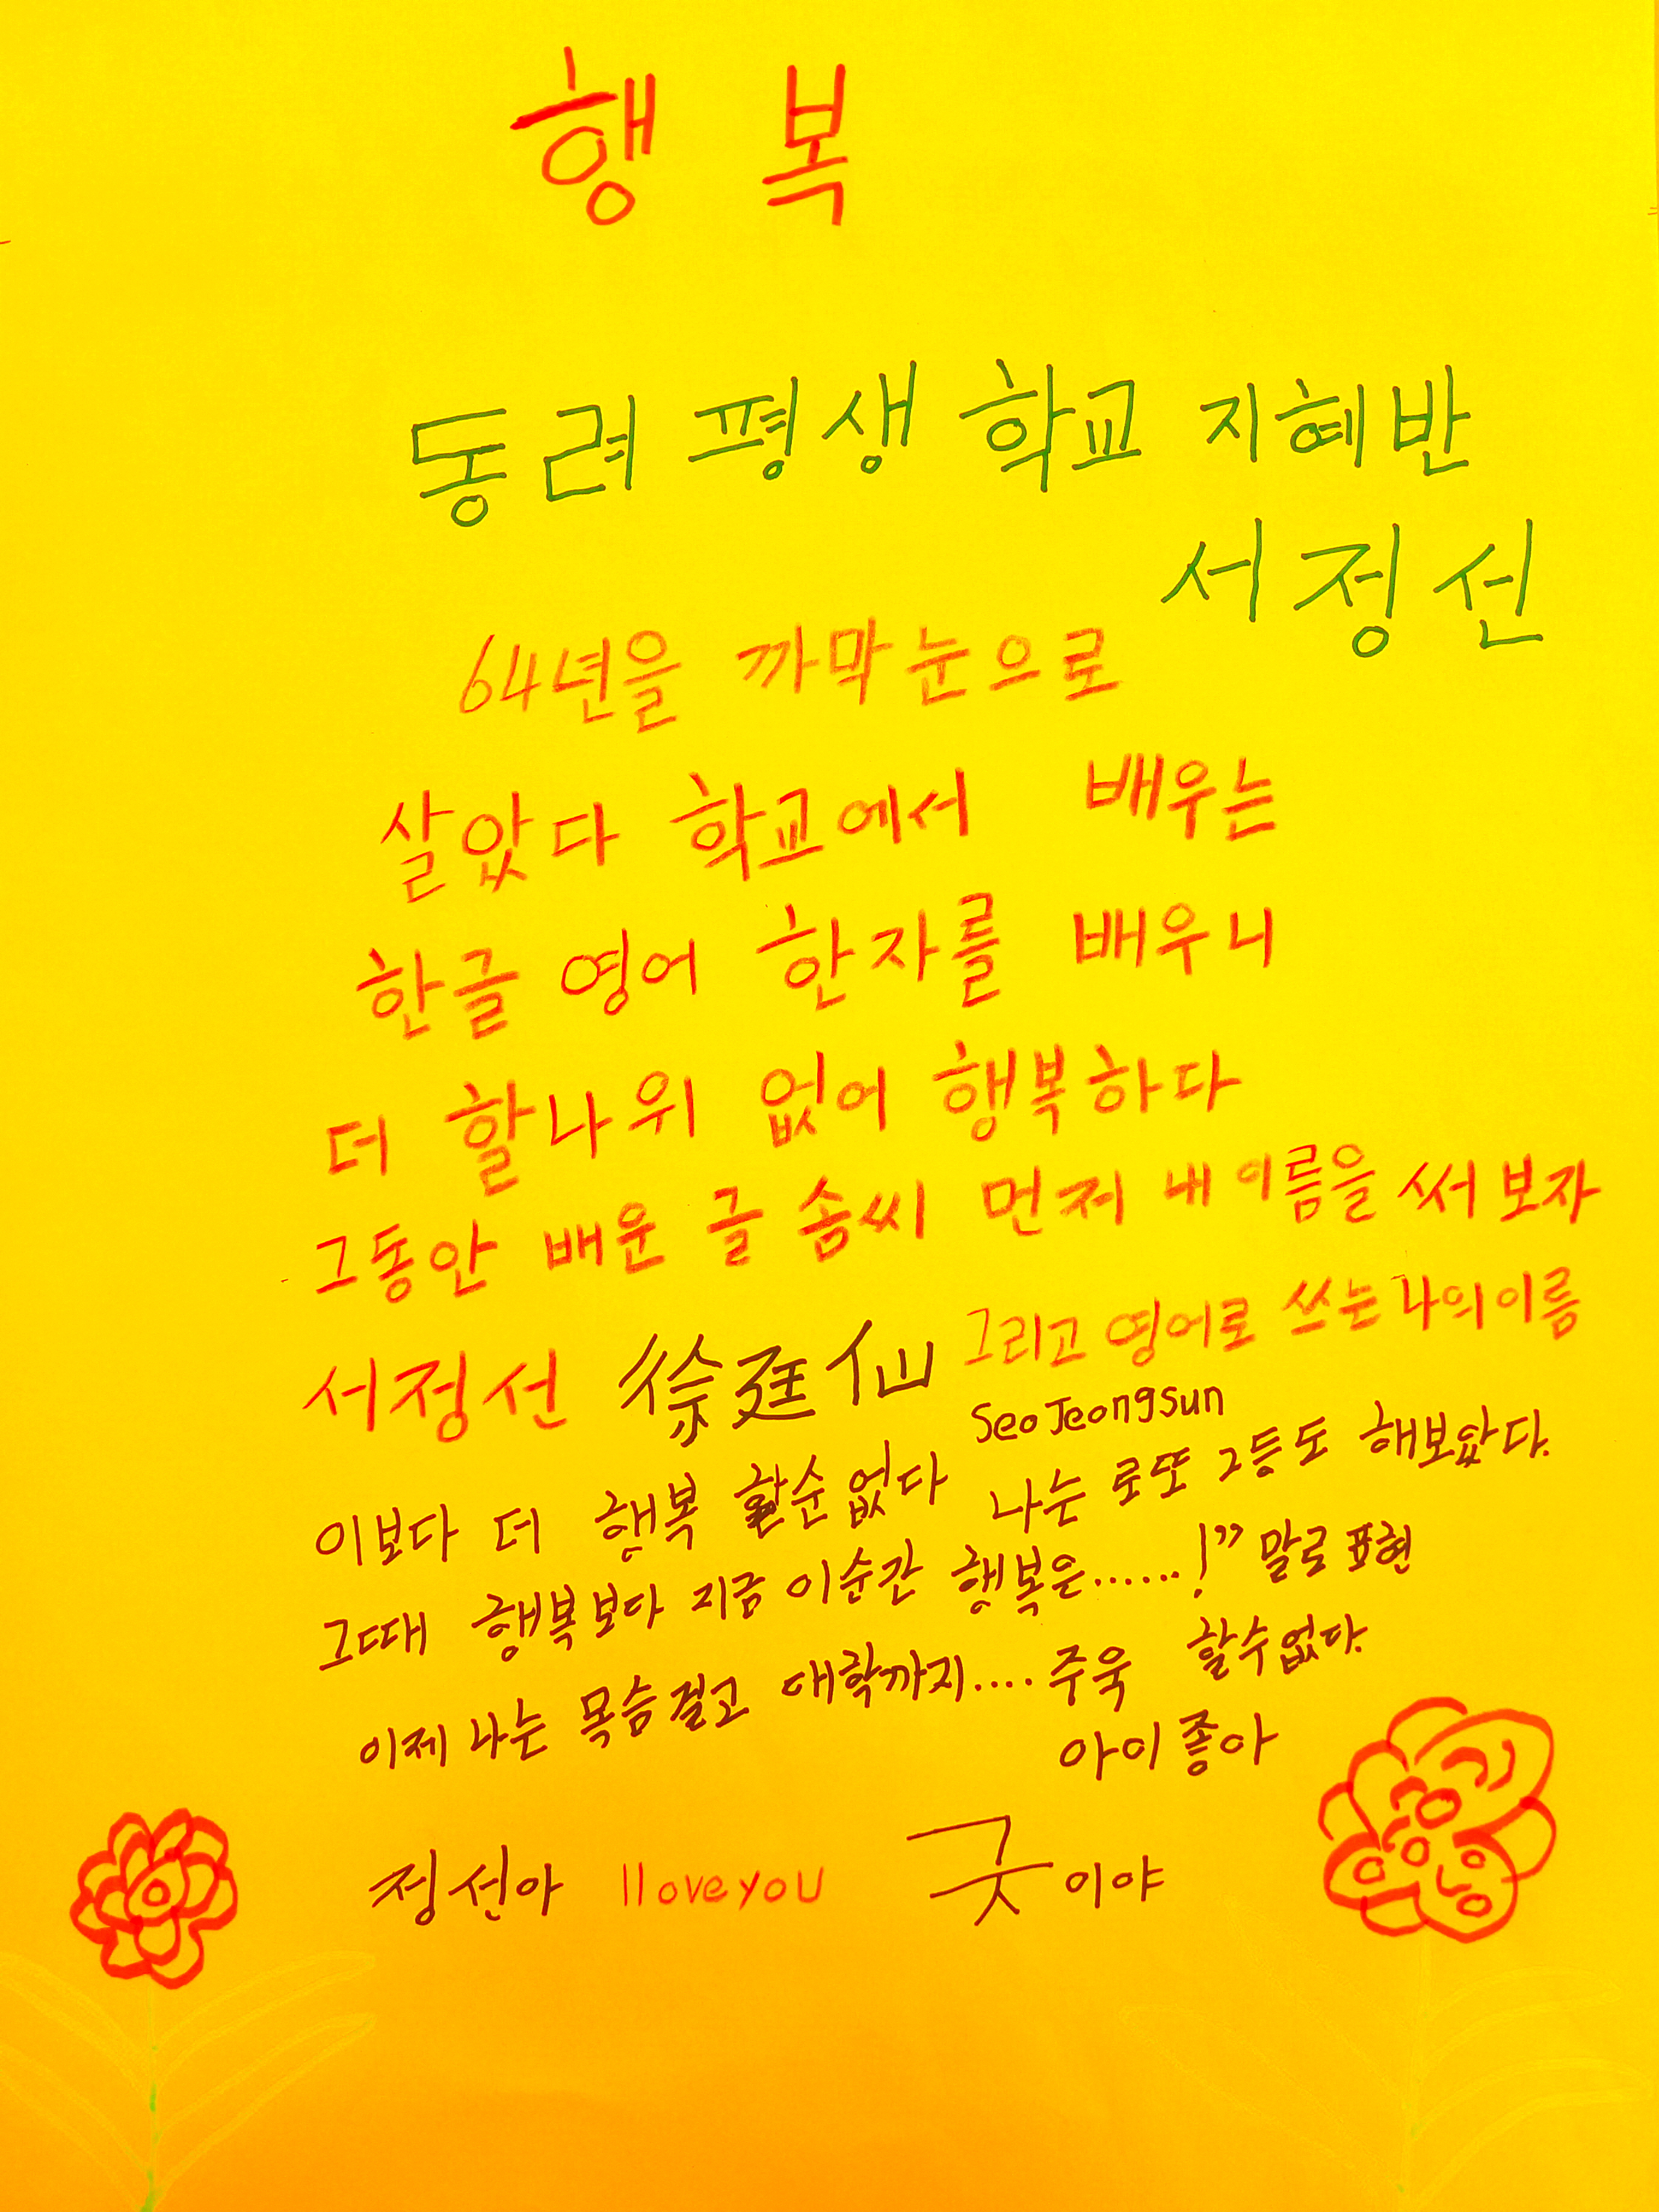 행 복
동려 평생 학교 지혜반
서정선
64년을 까막눈으로
살았다 학교에서 배우는
한글 영어 한자를 배우니
더 할나위 없어 행복하다
그동안 배운 글 솜씨 먼저 내 이름을 써 보자
서정선 徐廷仙 그리고 영어로 쓰는 나의 이름
Seo Jeongsun
이보다 더 행복 할순 없다 나는 로또 2등도 해보았다.
그때 행복보다 지금 이순간 행복은......!” 말로 표현
할수 없다.
이제 나는 목슴걸고 대학까지.... 주욱
아이 좋아
정선아 I love you 굿이야